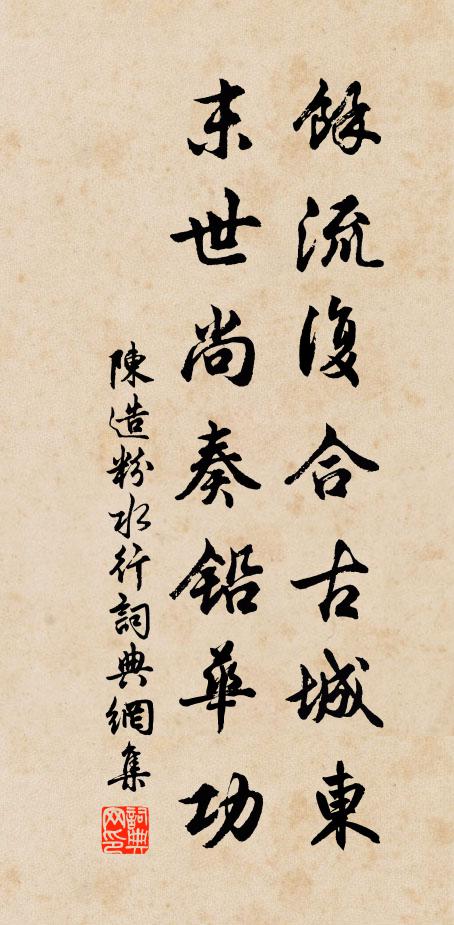 餘流復合古城東
末世尚奏鉛華功
陳造粉水行詞典網集
詞典網印